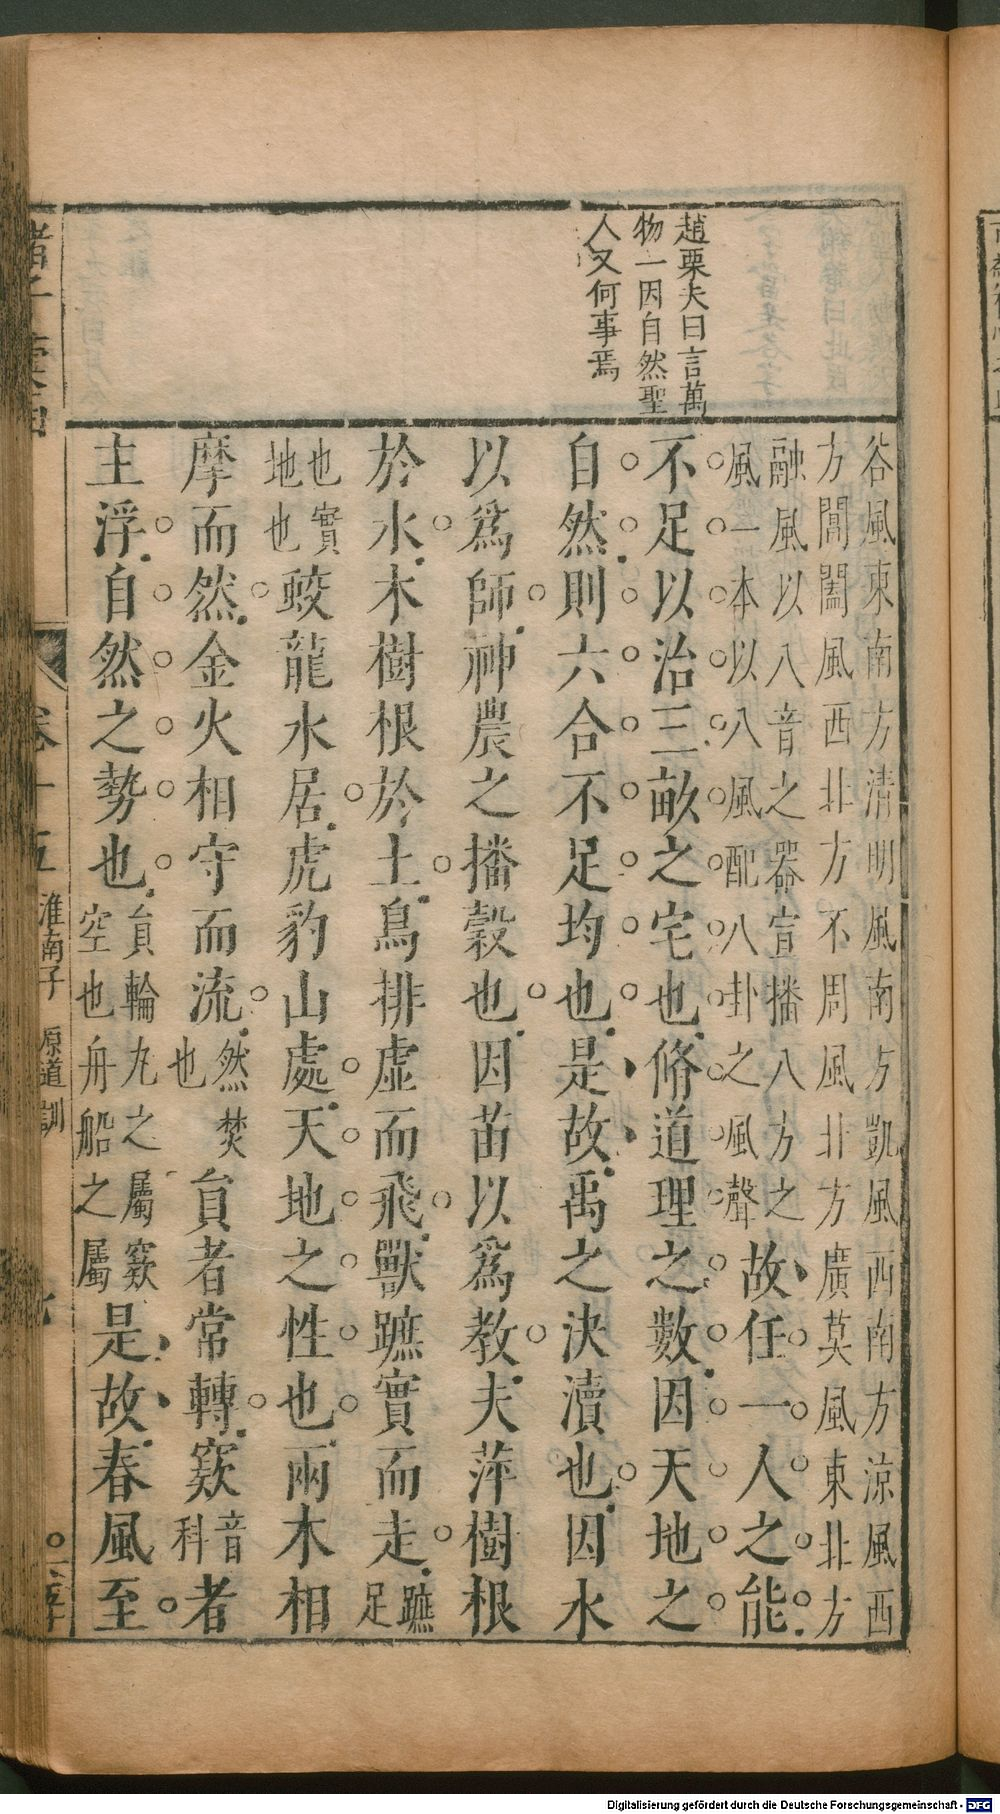 趙栗夫曰言萬
物一因自然聖
人又何事焉
谷風東南方清明風南方凱風西南方涼風西
方閶闔風西北方不周風北方廣莫風東北方
融風以八音之器宣播八方之
風一本以八風配八卦之風聲
故任一人之能
不足以治三畝之宅也脩道理之數因天地之
自然則六合不足均也是故禹之決瀆也因水
以爲師神農之播穀也因苗以爲教夫萍樹根
於水木樹根於土鳥排虛而飛獸蹠實而走蹠
足
也實
地也
蛟龍水居虎豹山處天地之性也兩木相
摩而然金火相守而流然焚
也
員者常轉窾音
科
者
主浮自然之勢也員輪丸之屬窾
空也舟船之屬
是故春風至
卷十五
淮南子
原道訓
Digitalisierung gefördert durch die Deutsche Forschungsgemeinschaft - DFG